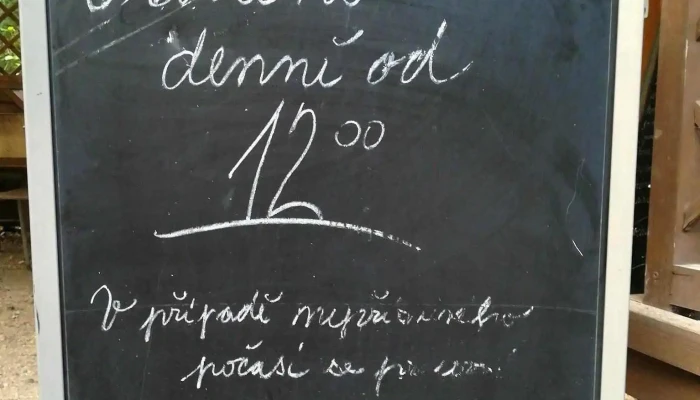 denně od
12⁰⁰
V případě nepříznivého
počasí se